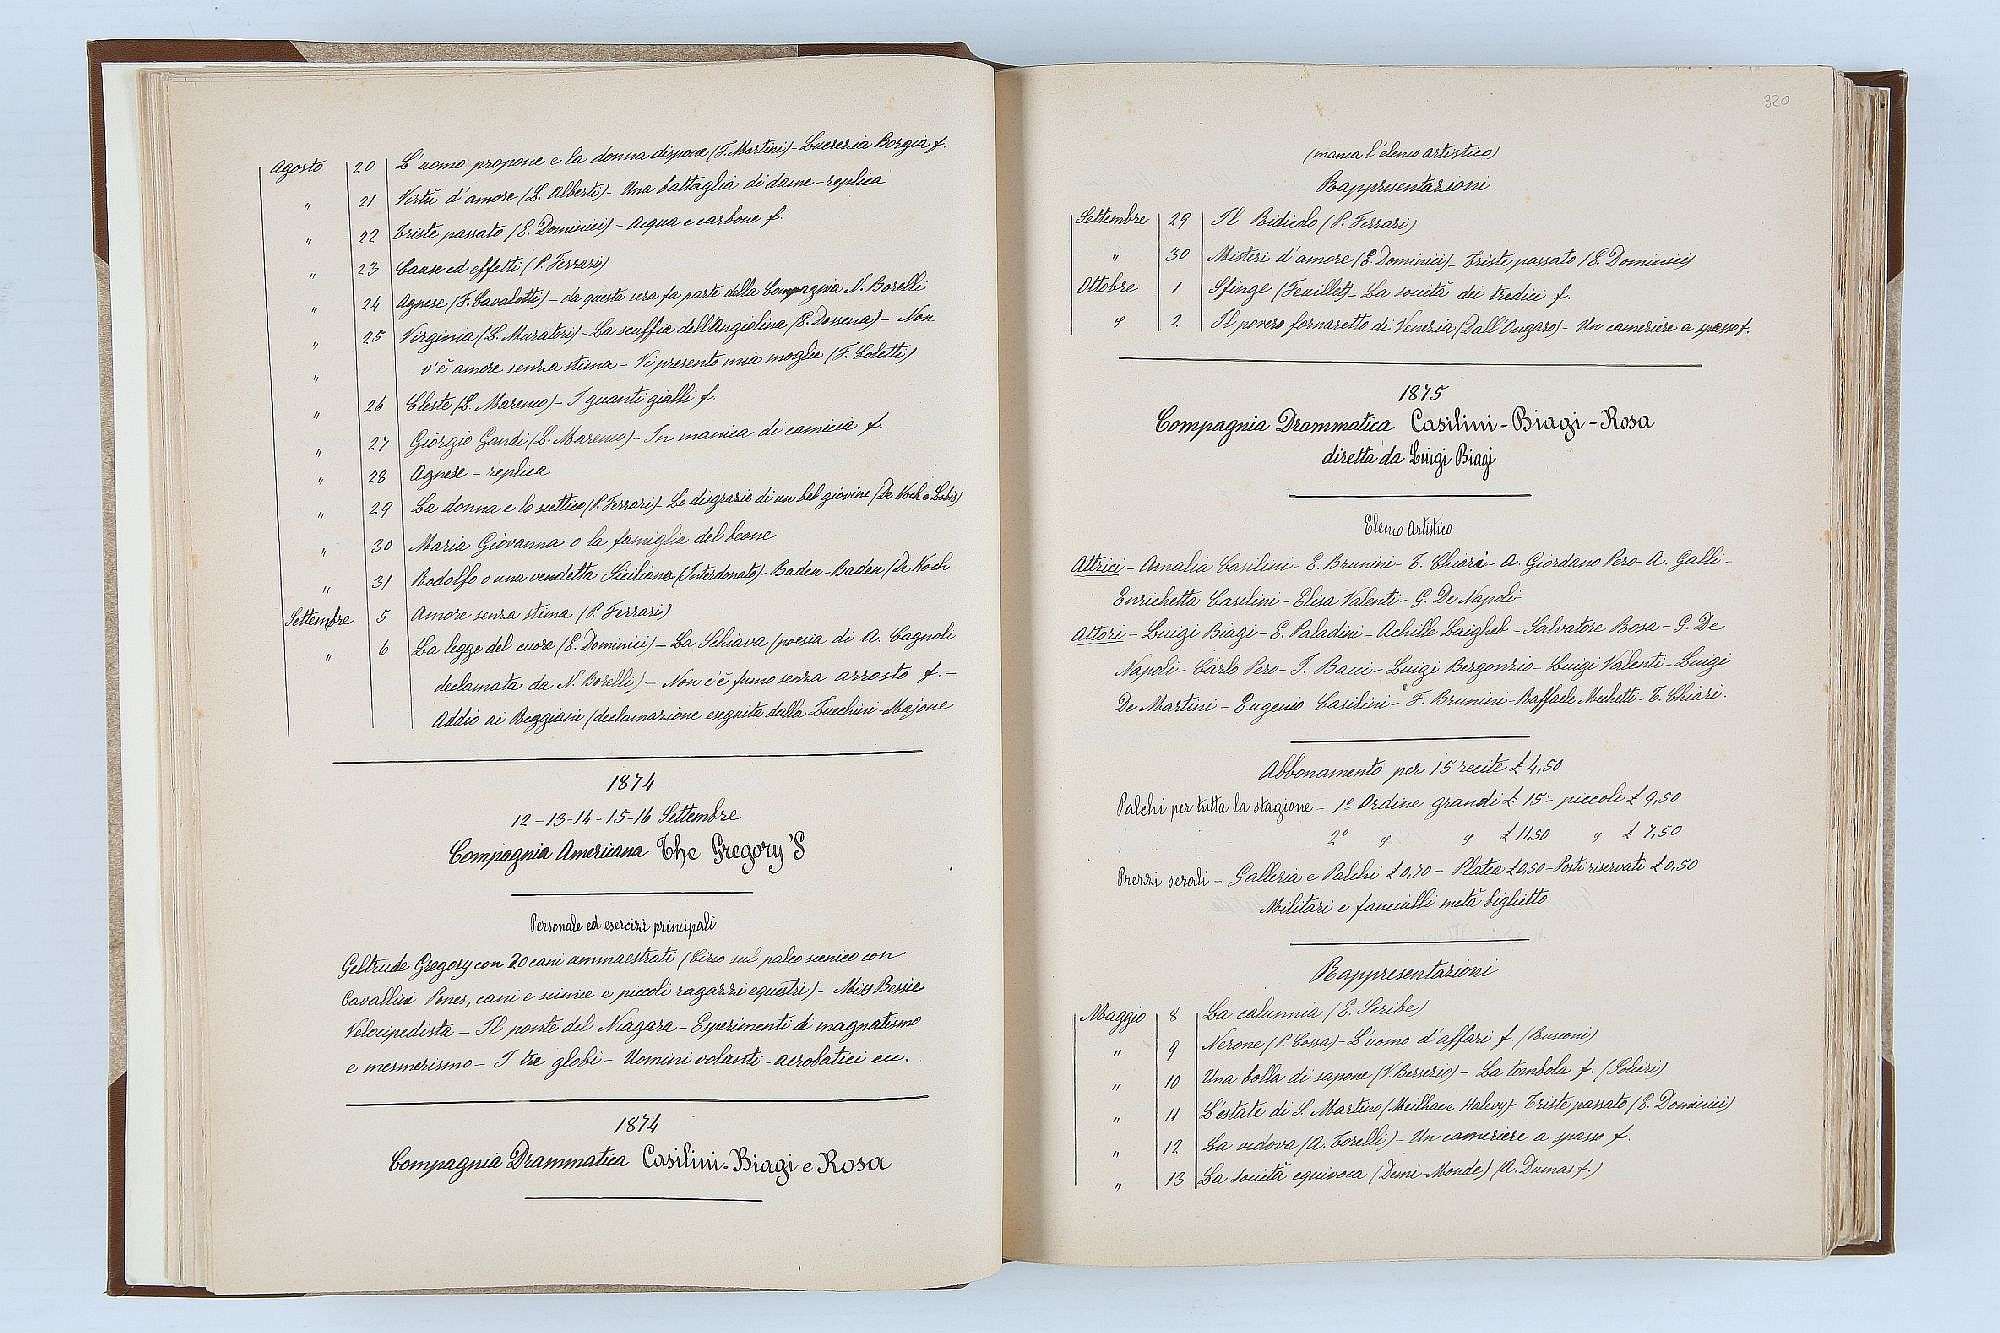 Agosto 20 L'uomo propone e la donna dispone (F. Martini) - Lucrezia Borgia f.
" 21 Virtù d'amore (L. Alberti) - Una battaglia di dame - replica
" 22 Triste passato (E. Dominici) - Acqua e carbone f.
" 23 Cause ed effetti (P. Ferrari)
" 24 Agnese (F. Cavalotti) - da questa sera fa parte della Compagnia N. Borelli
" 25 Virginia (L. Muratori) - La scuffia dell'Angiolina (E. Dossena) - Non
" v'è amore senza stima - Vi presento mia moglie (F. Coletti)
" 26 Celeste (L. Marenco) - I guanti gialli f.
" 27 Giorgio Gandi (L. Marenco) - In manica di camicia f.
" 28 Agnese - replica
" 29 La donna e lo scettico (P. Ferrari) - Le disgrazie di un bel giovine (De Kock e Labis)
" 30 Maria Giovanna o la famiglia del beone
" 31 Rodolfo o una vendetta Siciliana (Interdonato) - Baden-Baden (De Koch
Settembre 5 Amore senza stima (P. Ferrari)
" 6 La legge del cuore (E. Dominici) - La Schiava (poesia di A. Cagnoli
declamata da N. Borelli) - Non c'è fumo senza arrosto f. -
Addio ai Reggiani (declamazione eseguita dalla Zucchini-Majone
1874
12-13-14-15-16 Settembre
Compagnia Americana The Gregory'S
Personale ed esercizi principali
Geltrude Gregory con 20 cani ammaestrati (Circo sul palco scenico con
Cavallini Pones, cani e scimie e piccoli ragazzi equestri) - Miss Bessie
Velocipedista - Il ponte del Niagara - Esperimenti di magnatismo
e mesmerismo - I tre globi - Uomini volanti - acrobatici ecc.
1874
Compagnia Drammatica Casilini-Biagi e Rosa
320
(manca l'elenco artistico)
Rappresentazioni
Settembre 29 Il Ridicolo (P. Ferrari)
" 30 Misteri d'amore (E. Dominici) - Triste passato (E. Dominici)
Ottobre 1 Sfinge (Feuillet) - La società dei tredici f.
" 2 Il povero fornaretto di Venezia (Dall'Ongaro) - Un cameriere a spasso f.
1875
Compagnia Drammatica Casilini-Biagi-Rosa
diretta da Luigi Biagi
Elenco Artistico
Attrici - Amalia Casilini - E. Brunini - T. Chiari - A. Giordano Pero - A. Galli -
Enrichetta Casilini - Elisa Valenti - G. De Napoli
Attori - Luigi Biagi - E. Paladini - Achille Laighel - Salvatore Rosa - G. De
Napoli - Carlo Pero - F. Bacci - Luigi Bergonzio - Luigi Valenti - Luigi
De Martini - Eugenio Casilini - F. Brunini - Raffaele Micheletti - T. Chiari.
Abbonamento per 15 recite £ 4,50
Palchi per tutta la stagione - 1° Ordine grandi £ 15 - piccoli £ 9,50
2° " " £ 11,50 " £ 7,50
Prezzi serali - Galleria e Palchi £ 0,70 - Platea £ 0,50 - Posti riservati £ 0,50
Militari e fanciulli metà biglietto
Rappresentazioni
Maggio 8 La calunnia (E. Scribe)
" 9 Nerone (P. Cossa) - L'uomo d'affari f. (Busconi)
" 10 Una bolla di sapone (V. Bersezio) - La tombola f. (Solieri)
" 11 L'estate di S. Martino (Meilhac e Halevy) - Triste passato (E. Dominici)
" 12 La vedova (A. Torelli) - Un cameriere a spasso f.
" 13 La società equivoca (Demi-Monde) (A. Dumas f.)